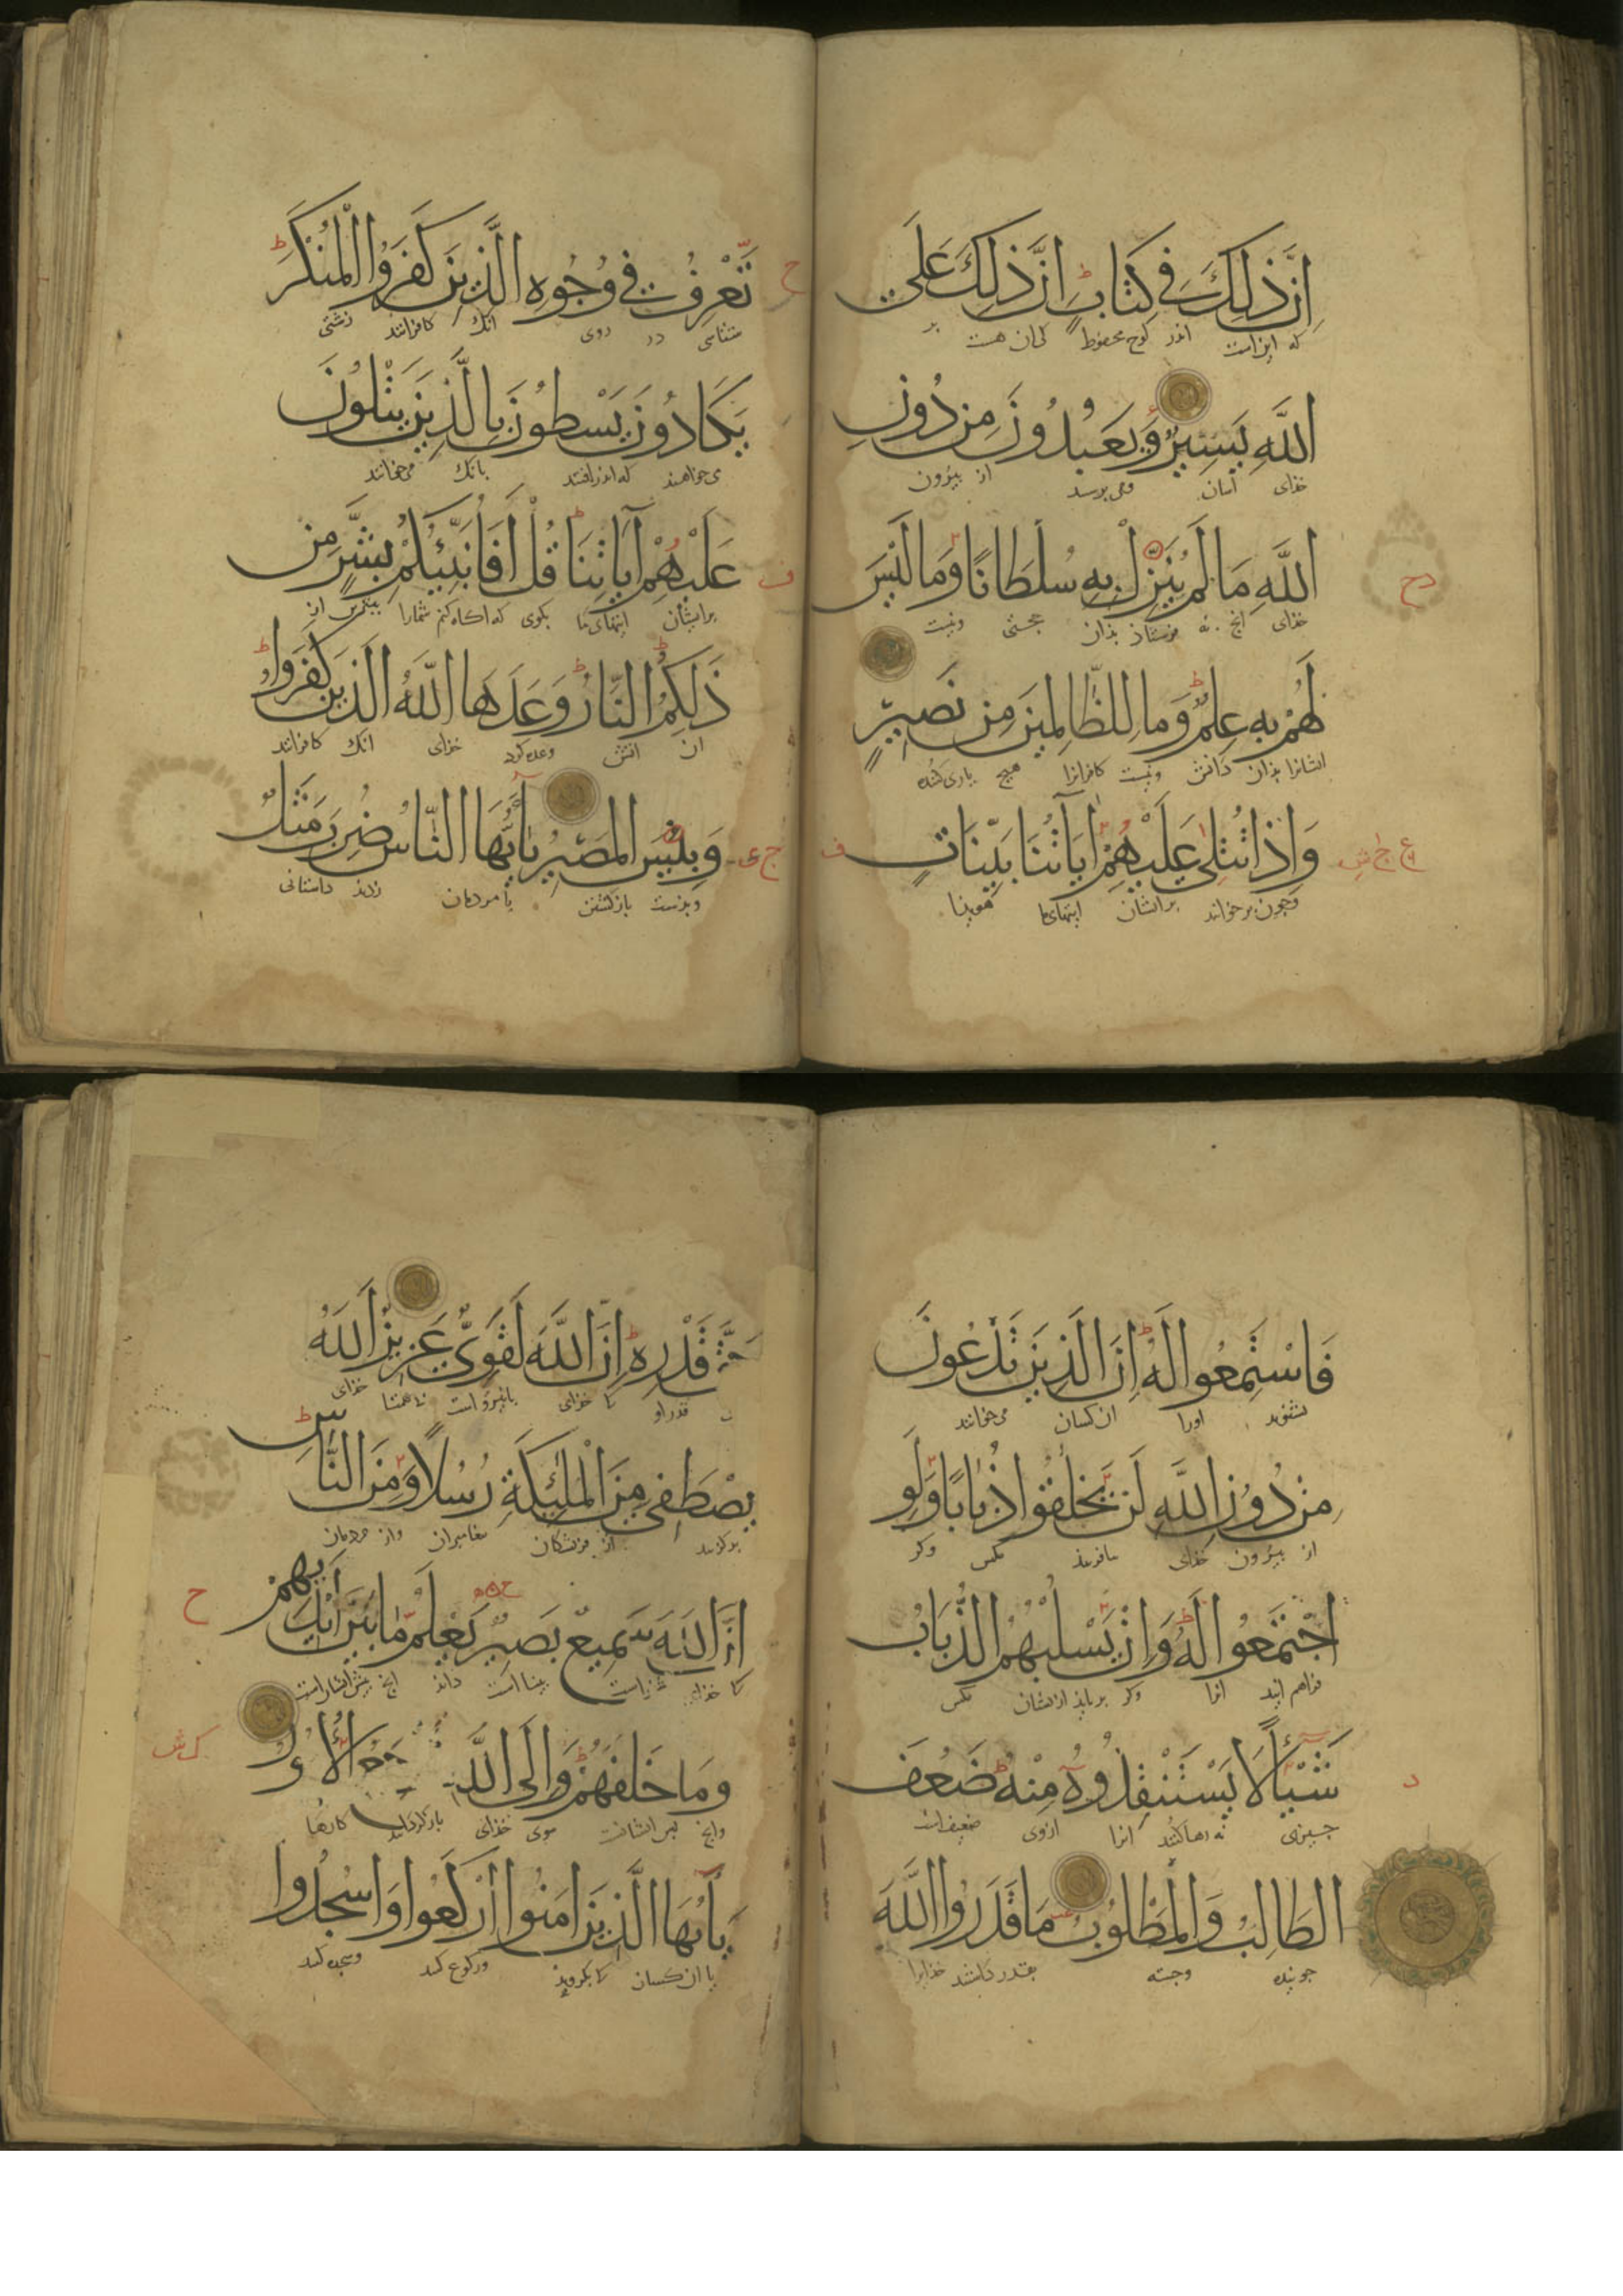 اِنَّ ذلِكَ فِي كِتَابٍ اِنَّ ذلِكَ عَلَى
که این است اندر لوح محفوظ کی ان هست بر
اللَّهِ يَسِيرٌ وَيَعْبُدُونَ مِنْ دُونِ
خذای اسان ومی برسند از بیرون
اللَّهِ مَا لَمْ يُنَزِّلْ بِهِ سُلْطَانًا وَمَا لَيْسَ
خذای انج نه فرستاذ بذان حجتی ونیست
لَهُمْ بِهِ عِلْمٌ وَمَا لِلظَّالِمِينَ مِنْ نَصِيرٍ
ایشانرا بذان دانش ونیست کافرانرا هیچ یاری کننده
وَاِذَا تُتْلَى عَلَيْهِمْ اٰيَاتُنَا بَيِّنَاتٍ
وجون برخوانند برایشان ایتهای ما
تَعْرِفُ فِي وُجُوهِ الَّذِينَ كَفَرُوا الْمُنْكَرَ
شناسی در روی انک کافرانند زشتی
يَكَادُونَ يَسْطُونَ بِالَّذِينَ يَتْلُونَ
می خواهند که اندر افتند بانک می خوانند
عَلَيْهِمْ اٰيَاتِنَا قُلْ اَفَاُنَبِّئُكُمْ بِشَرٍّ مِنْ
برایشان ایتهای ما بکوی که اکاه کنم شمارا بتر از
ذٰلِكُمُ النَّارُ وَعَدَهَا اللَّهُ الَّذِينَ كَفَرُوا
ان اتش وعده کرد خذای انک کافرانند
وَبِئْسَ الْمَصِيرُ يَااَيُّهَا النَّاسُ ضُرِبَ مَثَلٌ
وبذست بازکشتن یا مردمان زدند داستانی
فَاسْتَمِعُوا لَهُ اِنَّ الَّذِينَ تَدْعُونَ
بشنوید اورا ان کسان می خوانند
مِنْ دُونِ اللَّهِ لَنْ يَخْلُقُوا ذُبَابًا وَلَوِ
از بیرون خذای نیافرینند مکس وکر
اجْتَمَعُوا لَهُ وَاِنْ يَسْلُبْهُمُ الذُّبَابُ
فراهم ایند انرا وکر برباید ازیشان مکس
شَيْئًا لَا يَسْتَنْقِذُوهُ مِنْهُ ضَعُفَ
جیزی نه رها کنند انرا ازوی ضعیف است
الطَّالِبُ وَالْمَطْلُوبُ مَا قَدَرُوا اللَّهَ
جوینده وجسته بقدر داشتند خذایرا
حَقَّ قَدْرِهِ اِنَّ اللَّهَ لَقَوِيٌّ عَزِيزٌ اَللَّهُ
قدر او کا خذای بانیرو است خذای
يَصْطَفِي مِنَ الْمَلٰئِكَةِ رُسُلًا وَمِنَ النَّاسِ
برکزیند از فرشتکان بیغامبران واز مردمان
اِنَّ اللَّهَ سَمِيعٌ بَصِيرٌ يَعْلَمُ مَا بَيْنَ اَيْدِيهِمْ
کا خذای بینا است داند انج بیش ایشان است
وَمَا خَلْفَهُمْ وَاِلَى اللَّهِ تُرْجَعُ الْاُمُورُ
وانج بس ایشانست سوی خذای بازکردانند کارها
يَااَيُّهَا الَّذِينَ اٰمَنُوا ارْكَعُوا وَاسْجُدُوا
یا ان کسان کا بکرویذ ورکوع کنید وسجده کنید